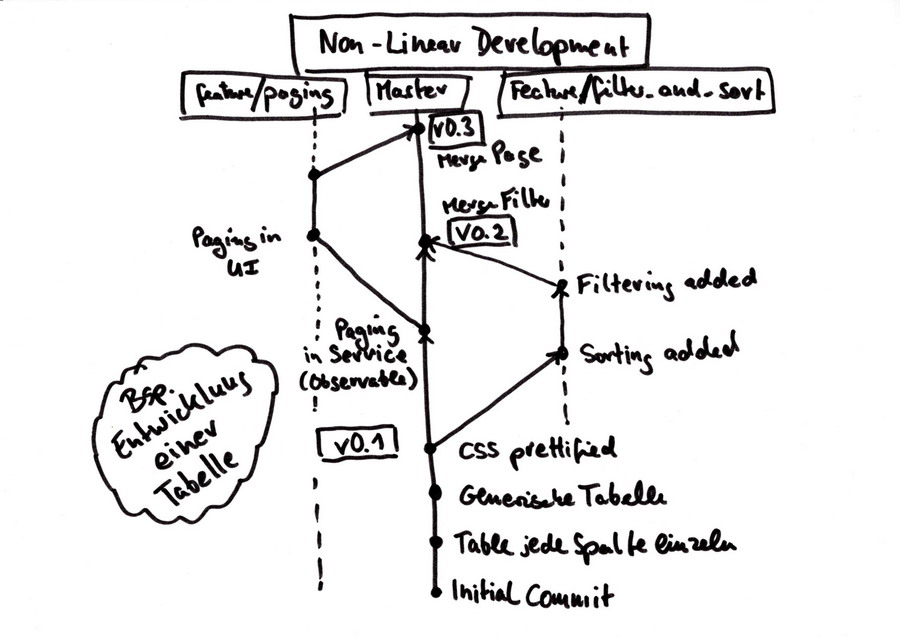 Non-Linear Development
feature/paging
Master
Feature/filter_and_sort
v0.3
Merge Page
Merge Filter
v0.2
Paging in
UI
Filtering added
Paging
in Service
(Observable)
Sorting added
Bsp.
Entwicklung
einer
Tabelle
v0.1
CSS prettified
Generische Tabelle
Table jede Spalte einzeln
Initial Commit